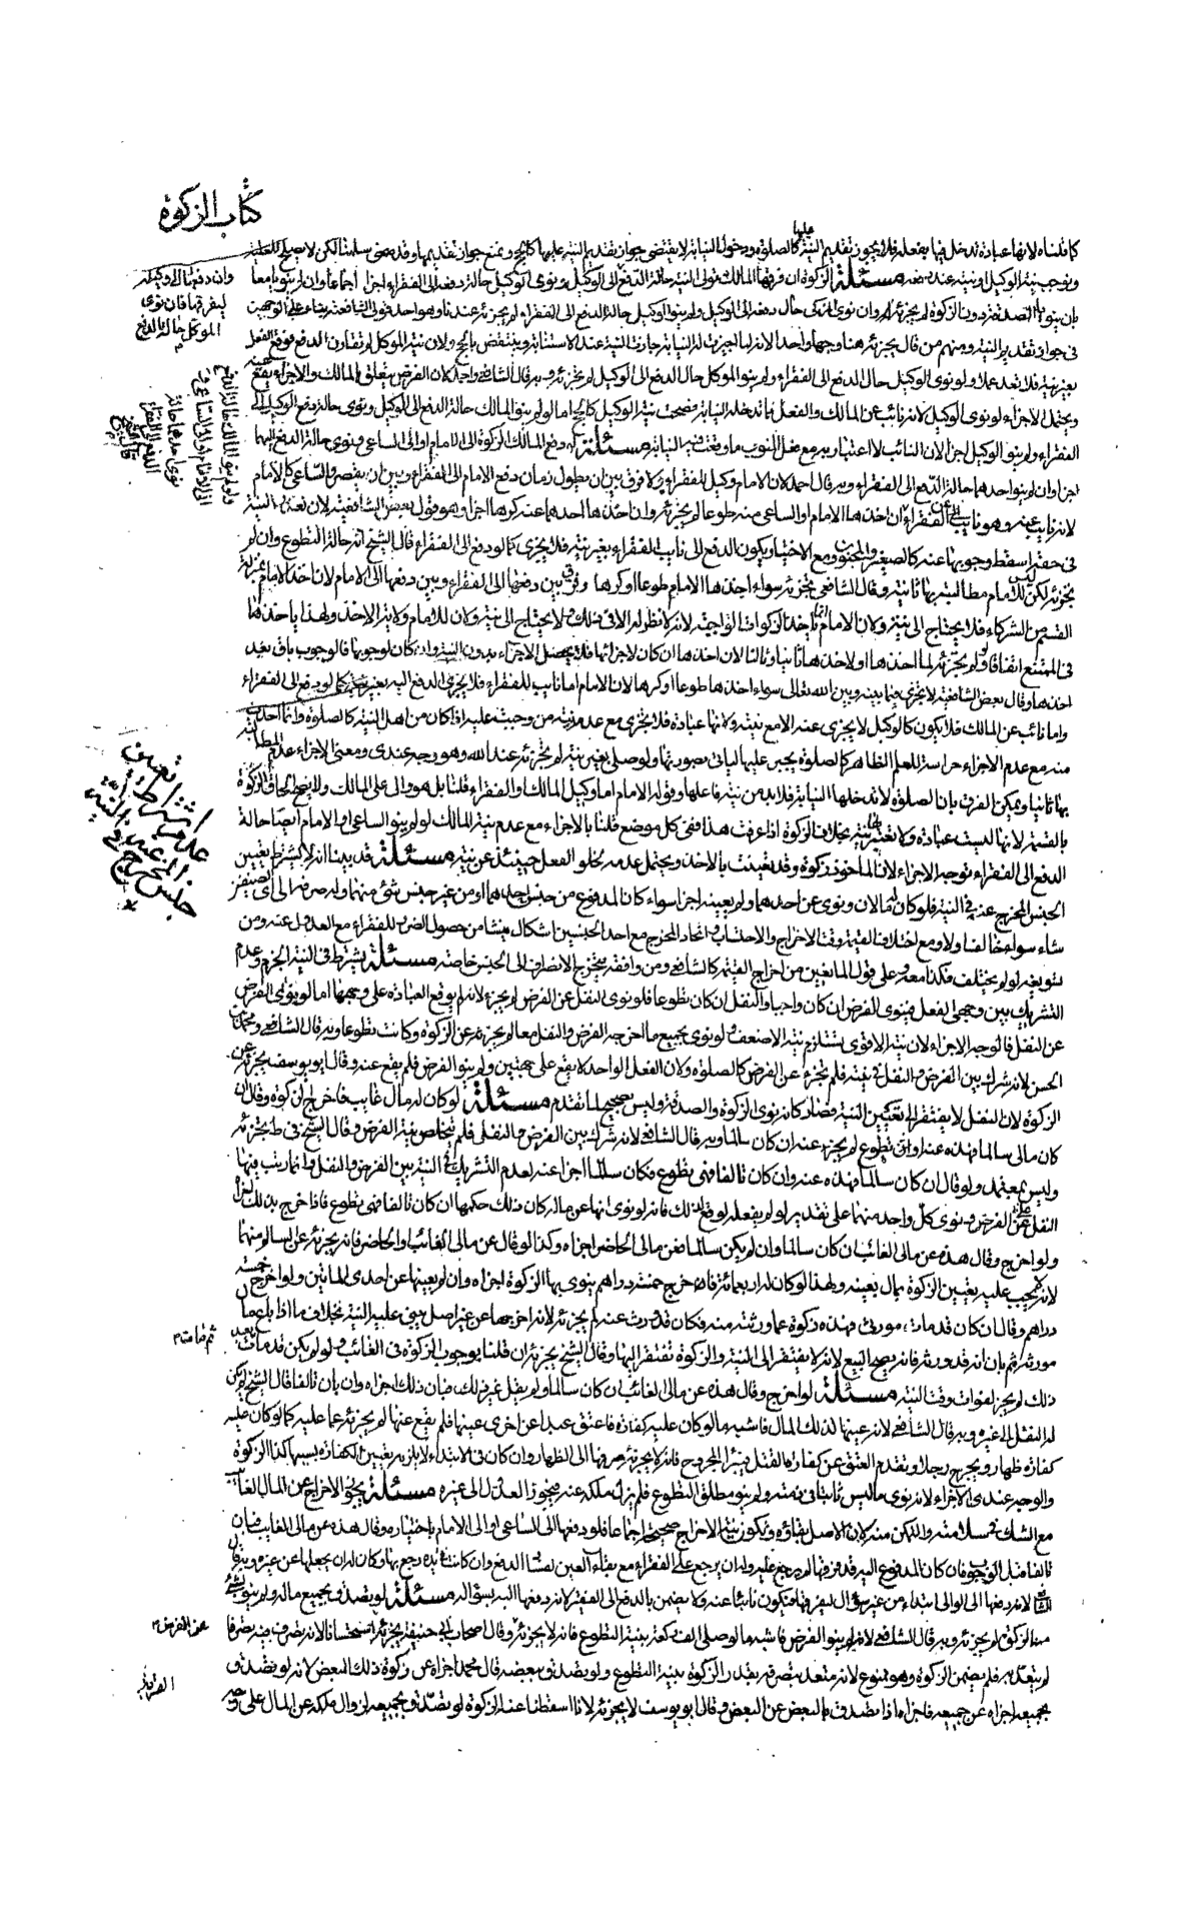 كتاب الزكوة
كما قلناه لانها عبادة تدخل فيها بفعله فلا يجوز تقديم النية عليها كالصلوة ودخول النيابة لا يقتضى جواز تقديم النية عليها كالحج ونمنع جواز تقديمها وقد مضى سلمنا لكن لا يصلح للعلية
ونوجب نية الوكيل او نيته عند دفعه مسئلة الزكوة ان فرقها المالك نوى النية حالة الدفع الى الوكيل ونوى الوكيل حالة دفعه الى الفقراء اجزأ اجماعا وان لم ينويا معا
بان ينويا الصدقة دون الزكوة لم يجزئه وان نوى المزكى حال دفعه الى الوكيل ولم ينو الوكيل حالة الدفع الى الفقراء لم يجزئه عندنا وهو احد قولى الشافعية بناء على الوجهين
فى جواز تقديم النية ومنهم من قال يجزئه هنا وجها واحدا لانه لما اجيزت له النيابة جازت النية عند الاستنابة وينتقض بالحج ولان نية الموكل لم تقارن الدفع فوقع الفعل
بغير نية فلا تعد عملا ولو نوى الوكيل حال الدفع الى الفقراء ولم ينو الموكل حال الدفع الى الوكيل لم يجزئه وبه قال الشافعى واحمد لان الفرض يتعلق بالمالك والاجزاء يقع عنه
ويحتمل الاجزاء لو نوى الوكيل لانه نائب عن المالك والفعل مما تدخله النيابة فصحت نية الوكيل كالحج اما لو لم ينو المالك حالة الدفع الى الوكيل ونوى حالة دفع الوكيل الى
الفقراء ولم ينو الوكيل اجزأ لان النائب لا اعتبار به مع فعل المنوب ما وقعت فيه النيابة مسئلة لو دفع المالك الزكوة الى الامام او الى الساعى ونوى حالة الدفع اليهما
اجزأ وان لم ينو احدهما حالة الدفع الى الفقراء وبه قال احمد لان الامام وكيل للفقراء ولا فرق بين ان يطول زمان دفع الامام الى الفقراء وبين ان يقصر والساعى كالامام
لانه نايب عنه وهو نايب عن الفقراء ان اخذها الامام او الساعى منه طوعا لم يجزئه وان اخذها احدهما عنه كرها اجزأ وهو قول بعض الشافعية لان تعذر النية
فى حقه اسقط وجوبها عنه كالصغير والمجنون ومع الاختيار يكون الدفع الى نايب الفقراء بغير نية فلا يجزى كما لو دفع الى الفقراء قال الشيخ انه حالة التطوع وان لم
يجزئه لكن ليس للامام مطالبته بها ثانية وقال الشافعى يجزئه سواء اخذها الامام طوعا او كرها وفرق بين دفعها الى الفقراء وبين دفعها الى الامام لان اخذ الامام بمنزلة
القسم من الشركاء فلا يحتاج الى نية ولان الامام انما ياخذ الزكوات الواجبة لانه لا نظر له الا فى ذلك ولا يحتاج الى نية ولان للامام ولاية الاخذ ولهذا ياخذها
فى الممتنع اتفاقا ولو لم يجزئه لما اخذها او لاخذها ثانيا وثالثا لان اخذها ان كان لاجزائها فلا يحصل الاجزاء بدون النية وان كان لوجوبها فالوجوب باق بعد
اخذها وقال بعض الشافعية لا يجزى فيما بينه وبين الله تعالى سواء اخذها طوعا او كرها لان الامام اما نايب للفقراء فلا يجزى الدفع اليه بغير نية كما لو دفع الى الفقراء
واما نائب عن المالك فلا يكون كالوكيل لا يجزى عنه الا مع نيته ولانها عبادة فلا يجزى مع عدم نية من وجبت عليه اذا كان من اهل النية كالصلوة وانما اخذت
منه مع عدم الاجزاء حراسة للعلم الظاهر كالصلوة يجبر عليها لياتى بصورتها ولو صلى بغير نية لم يجزئه عند الله وهو وجه عندى ومعنى الاجزاء عدم المطالبة
بها ثانيا ويمكن الفرق بان الصلوة لا تدخلها النيابة فلا بد من نية فاعلها وقوله الامام اما وكيل المالك او الفقراء قلنا بل هو والى على المالك ولا يصح الحاق الزكوة
بالقسمة لانها ليست عبادة ولا تعتبر لها نية بخلاف الزكوة اذا عرفت هذا ففى كل موضع قلنا بالاجزاء مع عدم نية المالك لو لم ينو الساعى او الامام ايضا حالة
الدفع الى الفقراء توجه الاجزاء لان الماخوذ زكوة وقد تعينت بالاخذ ويحتمل عدمه لخلو الفعل حينئذ عن نية مسئلة قد بينا انه لا يشترط تعيين
الجنس المخرج عنه فى النية فلو كان له مالان ونوى عن احدهما ولم يعينه اجزأ سواء كان المدفوع من جنس احدهما او من غير جنس شئ منهما وله صرفه الى اى الصنفين
شاء سواء خالفا اولا ومع اختلاف القيمة وقت الاخراج والاحتساب او اتحاد المخرج مع احد الجنسين اشكال ينشا من حصول الضرر للفقراء مع العدول عنه ومن
تسويغه لو لم يختلف فكذا معه وعلى قول المانعين من اخراج القيمة كالشافعى ومن وافقه يتخرج الانصراف الى الجنس خاصة مسئلة يشترط فى النية الجزم وعدم
التشريك بين وجهى الفعل فينوى الفرض ان كان واجبا والنفل ان كان تطوعا فلو نوى النفل عن الفرض لم يجزء لانه لم يوقع العبادة على وجهها اما لو نوى الفرض
عن النفل فالوجه الاجزاء لان نية الاقوى يستلزم نية الاضعف ولو نوى بجميع ما اخرجه الفرض والنفل معا لم يجزئه عن الزكوة وكانت تطوعا وبه قال الشافعى ومحمد بن
الحسن لانه شرك بين الفرض والنفل فى نيته فلم يجزء عن الفرض كالصلوة ولان الفعل الواحد لا يقع على جهتين ولم ينو الفرض فلم يقع عنه وقال ابو يوسف يجزئه عن
الزكوة لان النفل لا يفتقر الى تعيين النية فصار كانه نوى الزكوة والصدقة وليس بصحيح لما تقدم مسئلة لو كان له مال غايب فاخرج الزكوة وقال ان
كان مالى سالما فهذه عنه او تطوع لم يجزء عنه ان كان سالما وبه قال الشافعى لانه شرك بين الفرض والنفل فلم تتخلص نية الفرض وقال الشيخ فى ط يجزئه
وليس بمعتمد ولو قال ان كان سالما فهذه عنه وان كان تالفا فهى تطوع فكان سالما اجزأ عنه لعدم التشريك فى النية بين الفرض والنفل وانما رتب فيها
النفل على الفرض ونوى كل واحد منهما على تقدير لو لم يفعله لوقع كذلك فانه لو نوى انها عن ماله كان ذلك حكمها ان كان تالفا فهى تطوع فاذا خرج بذلك اجزأ
ولو اخرج وقال هذه عن مالى الغائب ان كان سالما وان لم يكن سالما فعن مالى الحاضر اجزاه وكذا لو قال عن مالى الغائب او الحاضر فانه يجزئه عن السالم منهما
لانه لا يجب عليه تعيين الزكوة بمال بعينه ولهذا لو كان له اربعمائة فاخرج خمسة دراهم ينوى بها الزكوة اجزاه وان لم يعينها عن احدى المائتين ولو اخرج خمسة
دراهم وقال ان كان قد مات مورثى فهذه زكوة عما ورثته منه فكان قد ورث عنه لم يجزئه لانه اخرجها عن غير اصل يبنى عليه النية بخلاف ما اذا باع مال
مورثه ثم بان انه قد ورثه فانه يصح البيع لانه لا يفتقر الى النية والزكوة تفتقر اليها وقال الشيخ يجزئه ان قلنا بوجوب الزكوة فى الغائب ولو لم يكن قد مات بعد
ذلك لم يجز لفوات وقت النية مسئلة لو اخرج وقال هذه عن مالى الغائب ان كان سالما ولم يقل غير ذلك فبان ذلك اجزاه وان بان تالفا قال الشيخ لم يكن
له النقل الى غيره وبه قال الشافعى لانه عينها لذلك المال فاشبه ما لو كان عليه كفارة فاعتق عبدا عن اخرى عينها فلم يقع عنها لم يجزئه عما عليه كما لو كان عليه
كفارة ظهار ويجرح رجلا وتقدم العتق عن كفارة القتل فيبرأ المجروح فانه لا يجزئه صرفها الى الظهار وان كان فى الابتداء لا يلزمه تعيين الكفارة بسببها كذا الزكوة
والوجه عندى الاجزاء لانه نوى ما ليس ثابتا فى ذمته ولم ينو مطلق التطوع فلم يزل ملكه عنه فيجوز العدول الى غيره مسئلة يجوز الاخراج عن المال الغائب
مع الشك فى سلامته والتمكن منه لان الاصل بقاؤه وتكون نية الاخراج صحيحة اجماعا فلو دفعها الى الساعى او الى الامام باختياره وقال هذه عن مالى الغايب فبان
تالفا قبل الوجوب فان كان المدفوع اليه قد فرقها لم يرجع عليه وله ان يرجع على الفقراء مع بقاء العين لفساد الدفع وان كانت فى يده رجع بها وكان له ان يجعلها عن غيره وبه قال
الشافعى لانه دفعها الى الوالى ابتداء من غير سؤال ليفرقها فيكون نائبا عنه ولا يضمن بالدفع الى الفقير لانه دفعها اليه بسؤاله مسئلة لو تصدق بجميع ماله ولم ينو بشئ
منه الزكوة لم يجزئه وبه قال الشافعى لانه لم ينو الفرض فاشبه ما لو صلى الف ركعة بنية التطوع فانه لا يجزئه وقال اصحاب ابى حنيفة يجزئه استحسانا لانه تصرف فيه تصرفا
لم يتعد به فلم يضمن الزكوة وهو ممنوع لانه متعد بتصرفه بقدر الزكوة بنية التطوع ولو تصدق ببعضه قال محمد اجزاه عن زكوة ذلك البعض لانه لو تصدق
بجميعه اجزاه عن جميعه فاجزاه اذا تصدق بالبعض عن البعض وقال ابو يوسف لا يجزئه لانا اسقطنا عنه الزكوة لو تصدق بجميعه لزوال ملكه عن المال على وجه
وان دفعها الى وكيله
ليفرقها فان نوى
الموكل حالة الدفع
عدم اشتراط تعيين
جنس المخرج عنه فى النية
عن الفرض